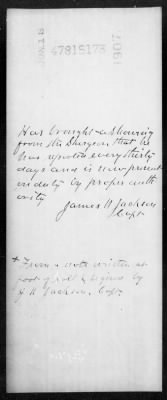 47815173
1907
Has brought a showing
from the Surgeon that he
has reported every thirty
days and is now present
on duty by proper auth
ority
James H Jackson
Capt
* From a note written at
foot of roll & signed by
J. H. Jackson, Capt.